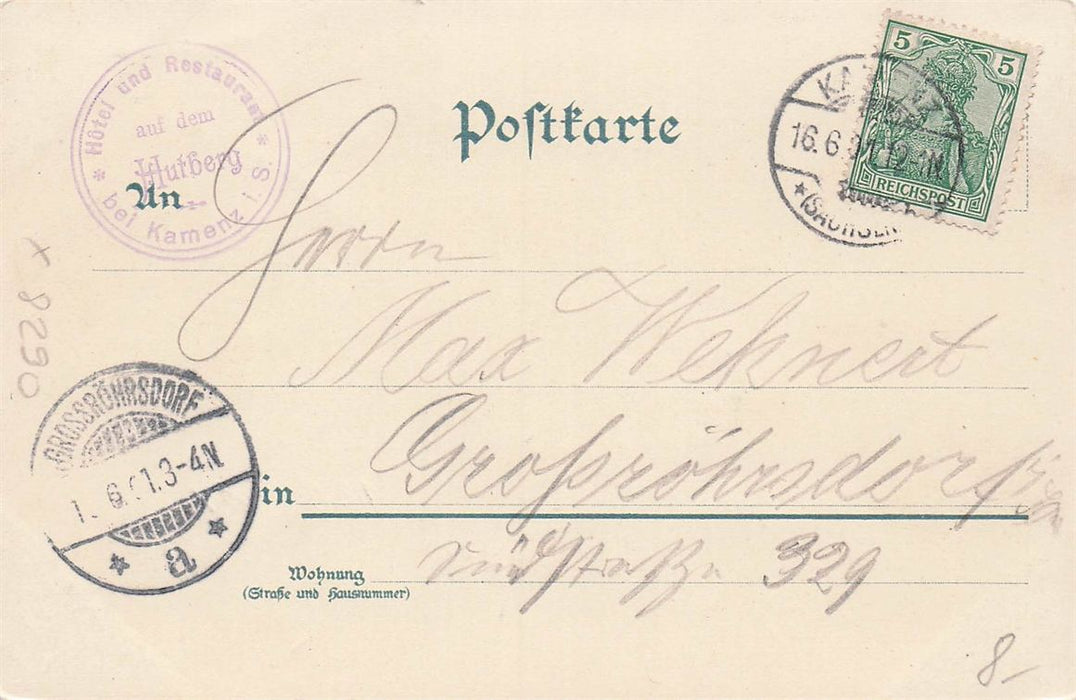 Hôtel und Restaurant
auf dem
Hutberg
bei Kamenz i. S.
Postkarte
5 5
REICHSPOST
KAMENZ
16.6.01.12-1N
(SACHSEN)
An
Herrn
Max Wehnert
+ 8290
GROSSRÖHRSDORF
6.01.3-4N
a
in
Großröhrsdorf
Wohnung
(Straße und Hausnummer)
Südstraße 329
8-